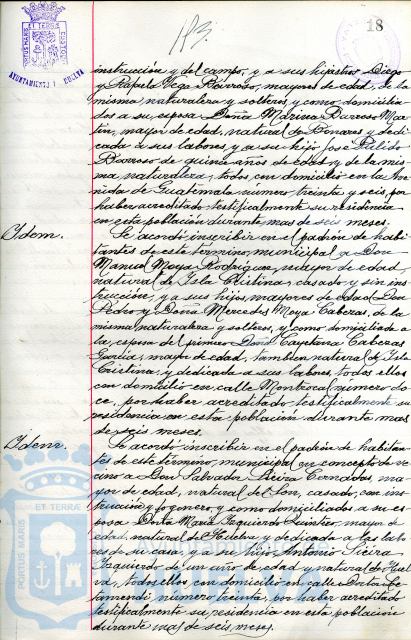 18
193.
PORTUS MARIS ET TERRÆ CUSTODIA
AYUNTAMIENTO HUELVA
instrucción y del campo, y a sus hijastros Diego
y Rafaela Vega Barroso, mayores de edad, de la
misma naturaleza y solteros, y como domicilia
dos a su esposa Doña Marina Barroso Mar
tín, mayor de edad, natural de Linares y dedi
cada a sus labores, y a su hijo José Pulido
Barroso de quince años de edad y de la mis
ma naturaleza, todos con domicilio en la Ave
nida de Guatemala número treinta y seis, por
haber acreditado testificalmente su residencia
en esta población durante mas de seis meses.
Idem.
Se acordó inscribir en el padrón de habi
tantes de este término municipal a Don
Manuel Moya Rodríguez, mayor de edad,
natural de Isla Cristina, casado y sin ins
trucción, y a sus hijos, mayores de edad Don
Pedro y Doña Mercedes Moya Cabezas, de la
misma naturaleza y solteros, y como domiciliada a
la esposa del primero Doña Cayetana Cabezas
García, mayor de edad, tambien natural de Isla
Cristina, y dedicada a sus labores, todos ellos
con domicilio en calle Montrocal número do
ce, por haber acreditado testificalmente su
residencia en esta población durante mas
de seis meses.
Idem.
Se acordó inscribir en el padrón de habitan
tes de este término municipal en concepto de ve
cino a Don Salvador Cernadas, ma
yor de edad, natural de Son, casado, con ins
trucción y fogonero, y como domiciliados a su es
posa Doña María Izquierdo mayor de
edad, natural de Huelva y dedicada a las labo
res de su casa, y a su hijo Antonio
Izquierdo de un año de edad y natural de Huel
va, todos ellos con domicilio en calle
número treinta, por haber acreditado
testificalmente su residencia en esta población
durante mas de seis meses.
PORTUS MARIS ET TERRÆ
Ayuntamiento